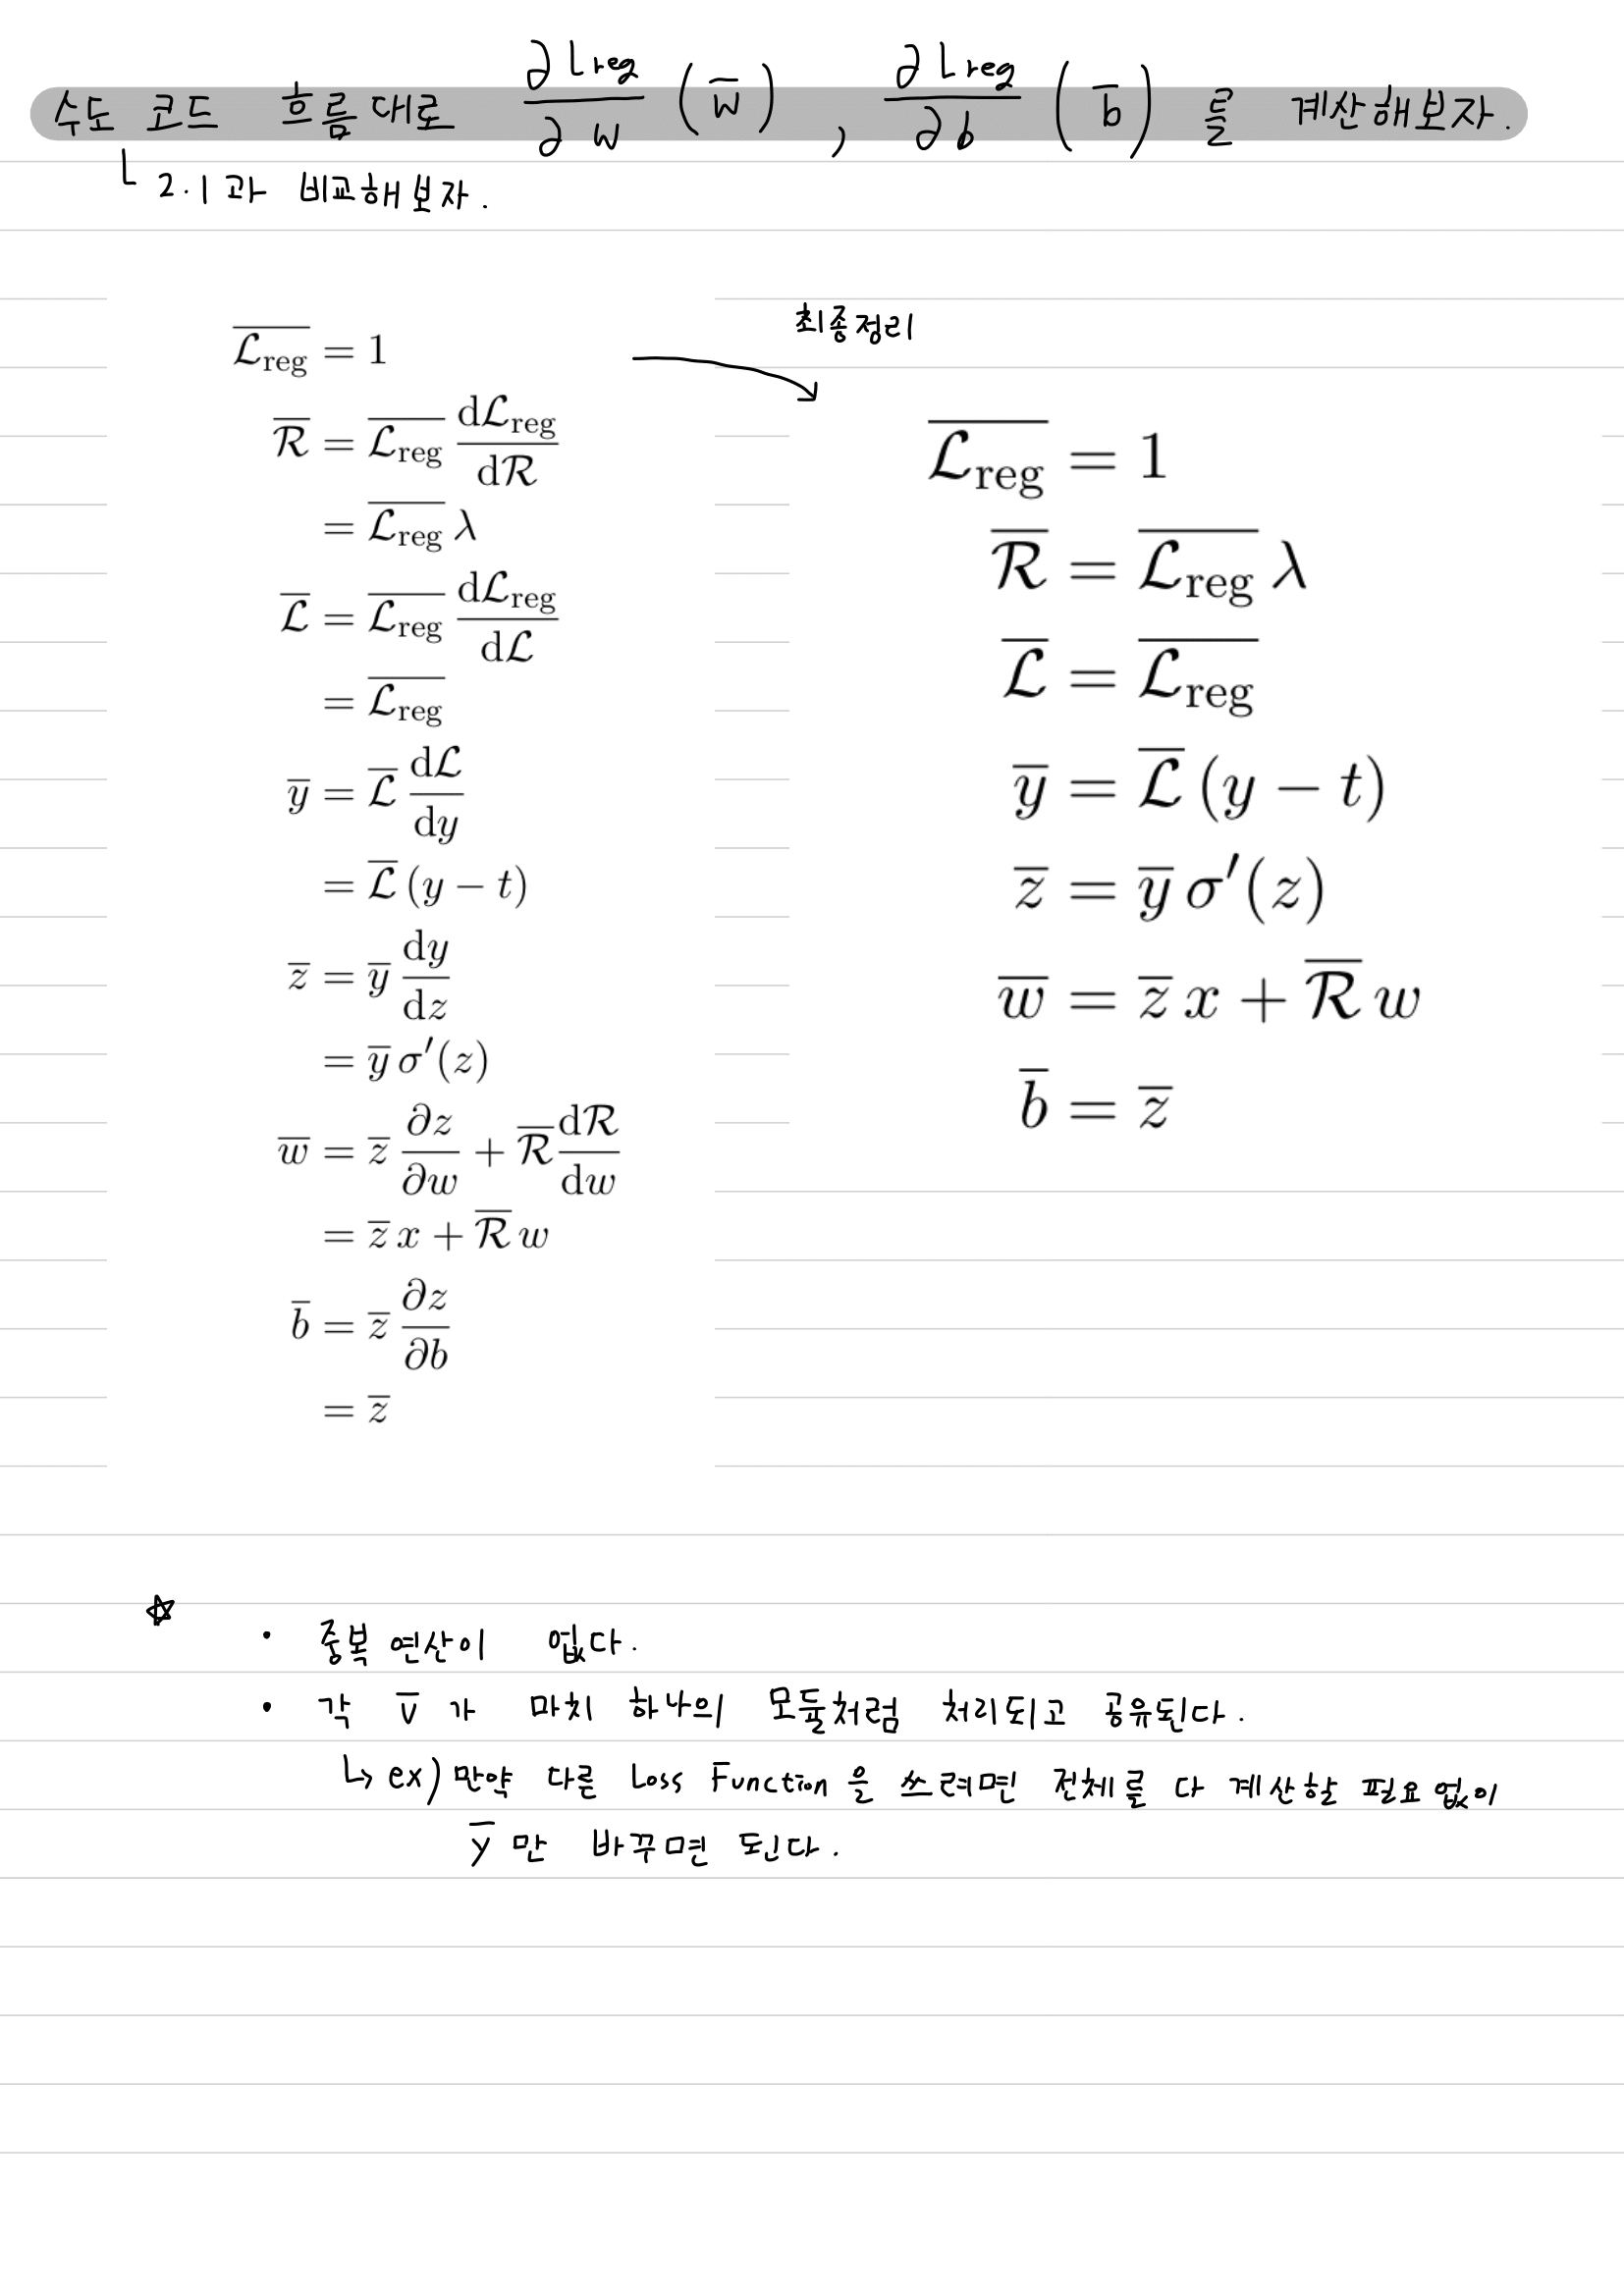 수도 코드 흐름대로 ∂Lreg/∂w (w̅) , ∂Lreg/∂b (b̅) 를 계산해보자.
└ 2.1과 비교해보자.
최종정리
$\overline{\mathcal{L}_{\text{reg}}} = 1$
$\overline{\mathcal{R}} = \overline{\mathcal{L}_{\text{reg}}} \frac{d\mathcal{L}_{\text{reg}}}{d\mathcal{R}}$
$= \overline{\mathcal{L}_{\text{reg}}} \lambda$
$\overline{\mathcal{L}} = \overline{\mathcal{L}_{\text{reg}}} \frac{d\mathcal{L}_{\text{reg}}}{d\mathcal{L}}$
$= \overline{\mathcal{L}_{\text{reg}}}$
$\overline{y} = \overline{\mathcal{L}} \frac{d\mathcal{L}}{dy}$
$= \overline{\mathcal{L}} (y - t)$
$\overline{z} = \overline{y} \frac{dy}{dz}$
$= \overline{y} \sigma'(z)$
$\overline{w} = \overline{z} \frac{\partial z}{\partial w} + \overline{\mathcal{R}} \frac{d\mathcal{R}}{dw}$
$= \overline{z} x + \overline{\mathcal{R}} w$
$\overline{b} = \overline{z} \frac{\partial z}{\partial b}$
$= \overline{z}$
$\overline{\mathcal{L}_{\text{reg}}} = 1$
$\overline{\mathcal{R}} = \overline{\mathcal{L}_{\text{reg}}} \lambda$
$\overline{\mathcal{L}} = \overline{\mathcal{L}_{\text{reg}}}$
$\overline{y} = \overline{\mathcal{L}} (y - t)$
$\overline{z} = \overline{y} \sigma'(z)$
$\overline{w} = \overline{z} x + \overline{\mathcal{R}} w$
$\overline{b} = \overline{z}$
☆
• 중복 연산이 없다.
• 각 v̅ 가 마치 하나의 모듈처럼 처리되고 공유된다.
↳ ex) 만약 다른 Loss Function을 쓰려면 전체를 다 계산할 필요 없이
y̅ 만 바꾸면 된다.